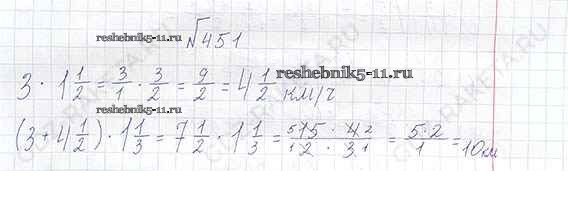 reshebnik5-11.ru
№451
3 · 1 1/2 = 3/1 · 3/2 = 9/2 = 4 1/2 км/ч
reshebnik5-11.ru
reshebnik5-11.ru
(3 + 4 1/2) · 1 1/3 = 7 1/2 · 1 1/3 = 15 · 4 / 2 · 3 = 5·2/1 = 10 км